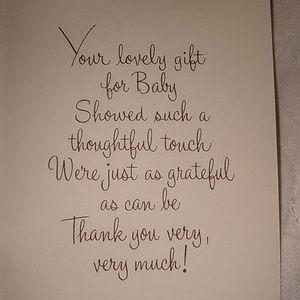 Your lovely gift
for Baby
Showed such a
thoughtful touch
We're just as grateful
as can be
Thank you very,
very much!